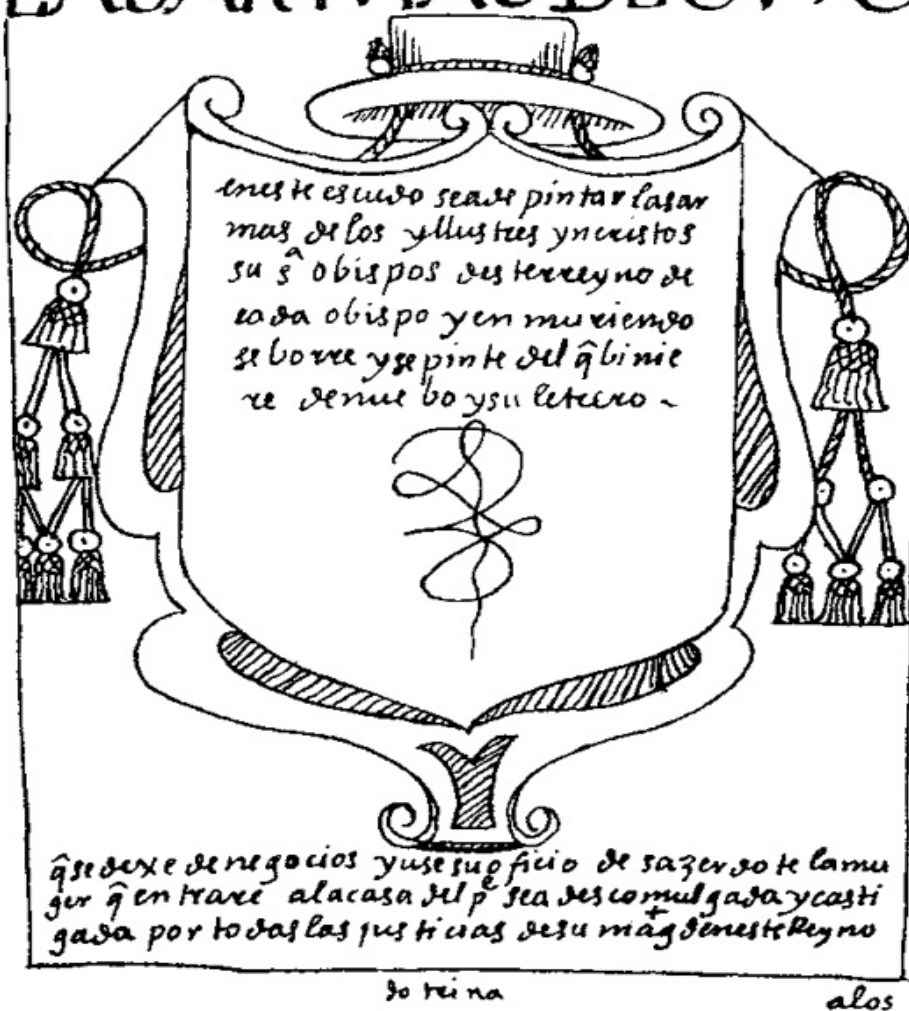 enes te escudo seade pintar lasar
mas de los yllustres yncristos
su sᵃ obispos desterreyno de
cada obispo y en muriendo
se borre y se pinte del q̃ binie
re denue bo ysu letrero ~
q̃ sedexe denegocios yuse su oficio de sazerdo te lamu
ger q̃ en trare alacasa del pᵉ sea descomulgada ycasti
gada por todas las justicias desu mag̃ deneste Reyno
do trina
alos